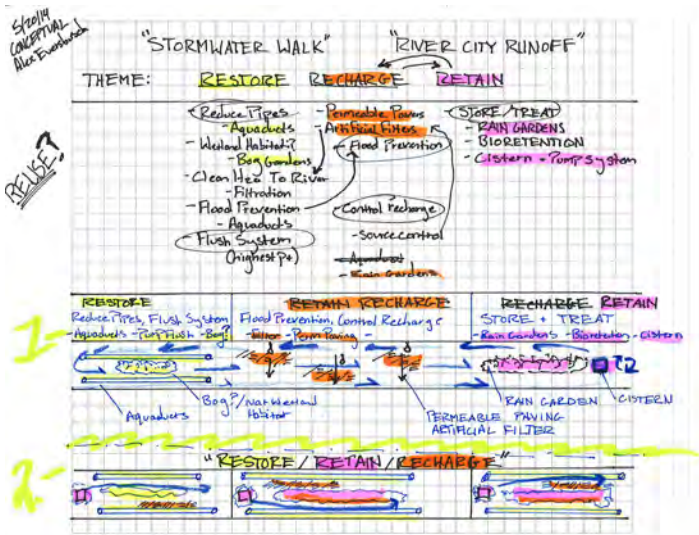 5/20/14
CONCEPTUAL
"STORMWATER WALK" "RIVER CITY RUNOFF"
THEME: RESTORE RECHARGE RETAIN
REUSE?
- Reduce Pipes
- Aquaducts
- Wetland Habitat?
- Bog Gardens
- Clean H2O To River
- Filtration
- Flood Prevention
- Aquaducts
- Flush System
(highest pt)
- Permeable Pavers
- Artificial Filters
- Flood Prevention
- Control Recharge
- Source control
- Aquaduct
- Rain Gardens
- STORE/TREAT
- RAIN GARDENS
- BIORETENTION
- Cistern + Pump System
1-
RESTORE
Reduce Pipes, Flush System
- Aquaducts - Pump Flush - Bog?
RETAIN RECHARGE
Flood Prevention, Control Recharge
- Filter - Perm Paving
RECHARGE RETAIN
STORE + TREAT
- Rain Gardens - Bioretention - Cistern
Aquaducts
Bog?/Nat Wetland
Habitat
PERMEABLE PAVING
ARTIFICIAL FILTER
RAIN GARDEN
CISTERN
2-
"RESTORE/RETAIN/RECHARGE"